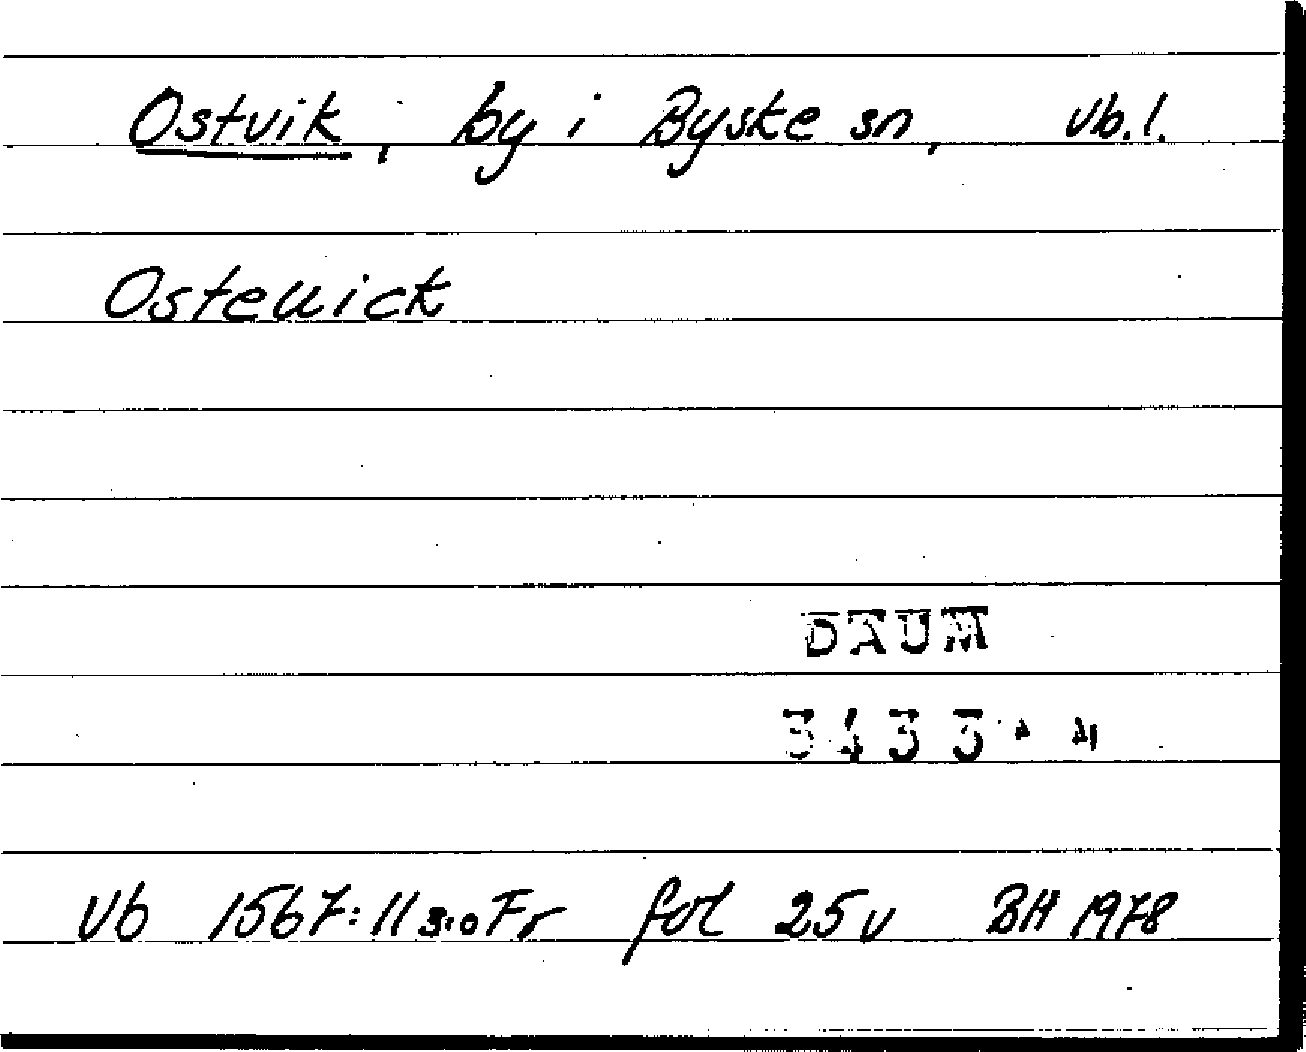 Ostvik, by i Byske sn, Vb.l.
Osteuick
DAUM
3433
Vb 1567:11 3:0 Fr fol 25 v BH 1978